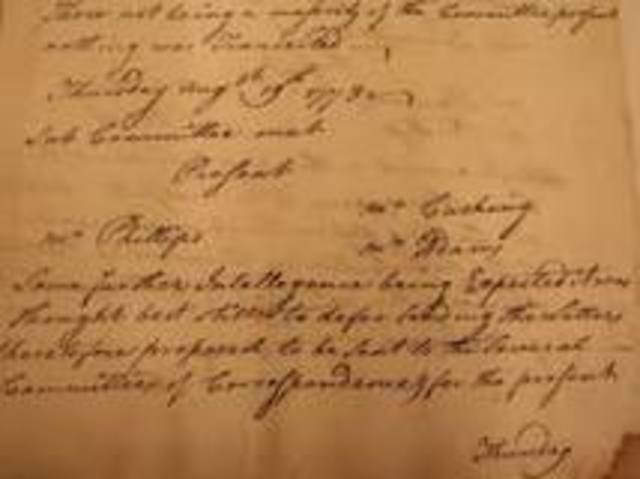 There not being a majority of the Committee present
nothing was transacted
Thursday Augt 19th 1773
Sub Committee met
Present
Mr Cushing
Mr Phillips
Mr Adams
Some further Intellegence being Expected it was
thought best still to defer sending the Letters
heretofore proposed to be sent to the Several
Committees of Correspondence for the present
Thursday